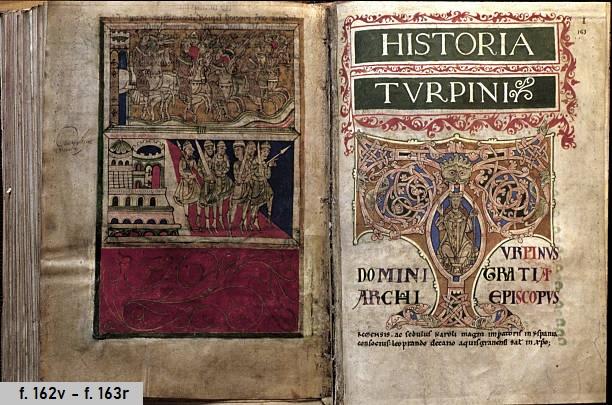 I
163
HISTORIA
TVRPINI
VRPINVS
DOMINI GRATIA
ARCHI EPISCOPVS
ac sedulus karoli magni imperatoris in hyspania
consocius leoprando decano aquisgranensi
f. 162v - f. 163r